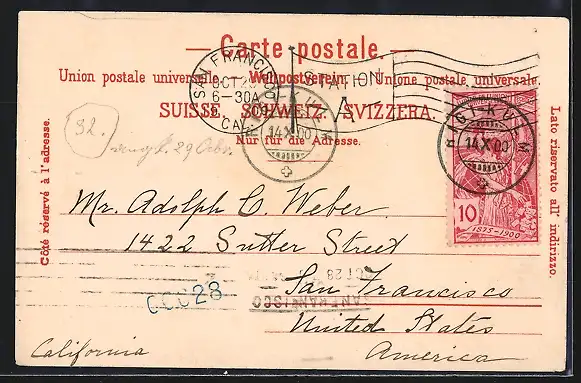 Carte postale.
Union postale universelle. — Weltpostverein. — Unione postale universale.
SUISSE. SCHWEIZ. SVIZZERA.
Nur für die Adresse.
Côté réservé à l'adresse.
Lato riservato all' indirizzo.
SAN FRANCISCO
OCT 29
6-30A
CAL
STATION
14.X.00
RIGI KULM
14.X.00
10
1875-1900
32.
29 Octbr.
Mr. Adolph C. Weber.
1422 Sutter Street
San Francisco
United States
America
California
OCT 28
SAN FRANCISCO
28